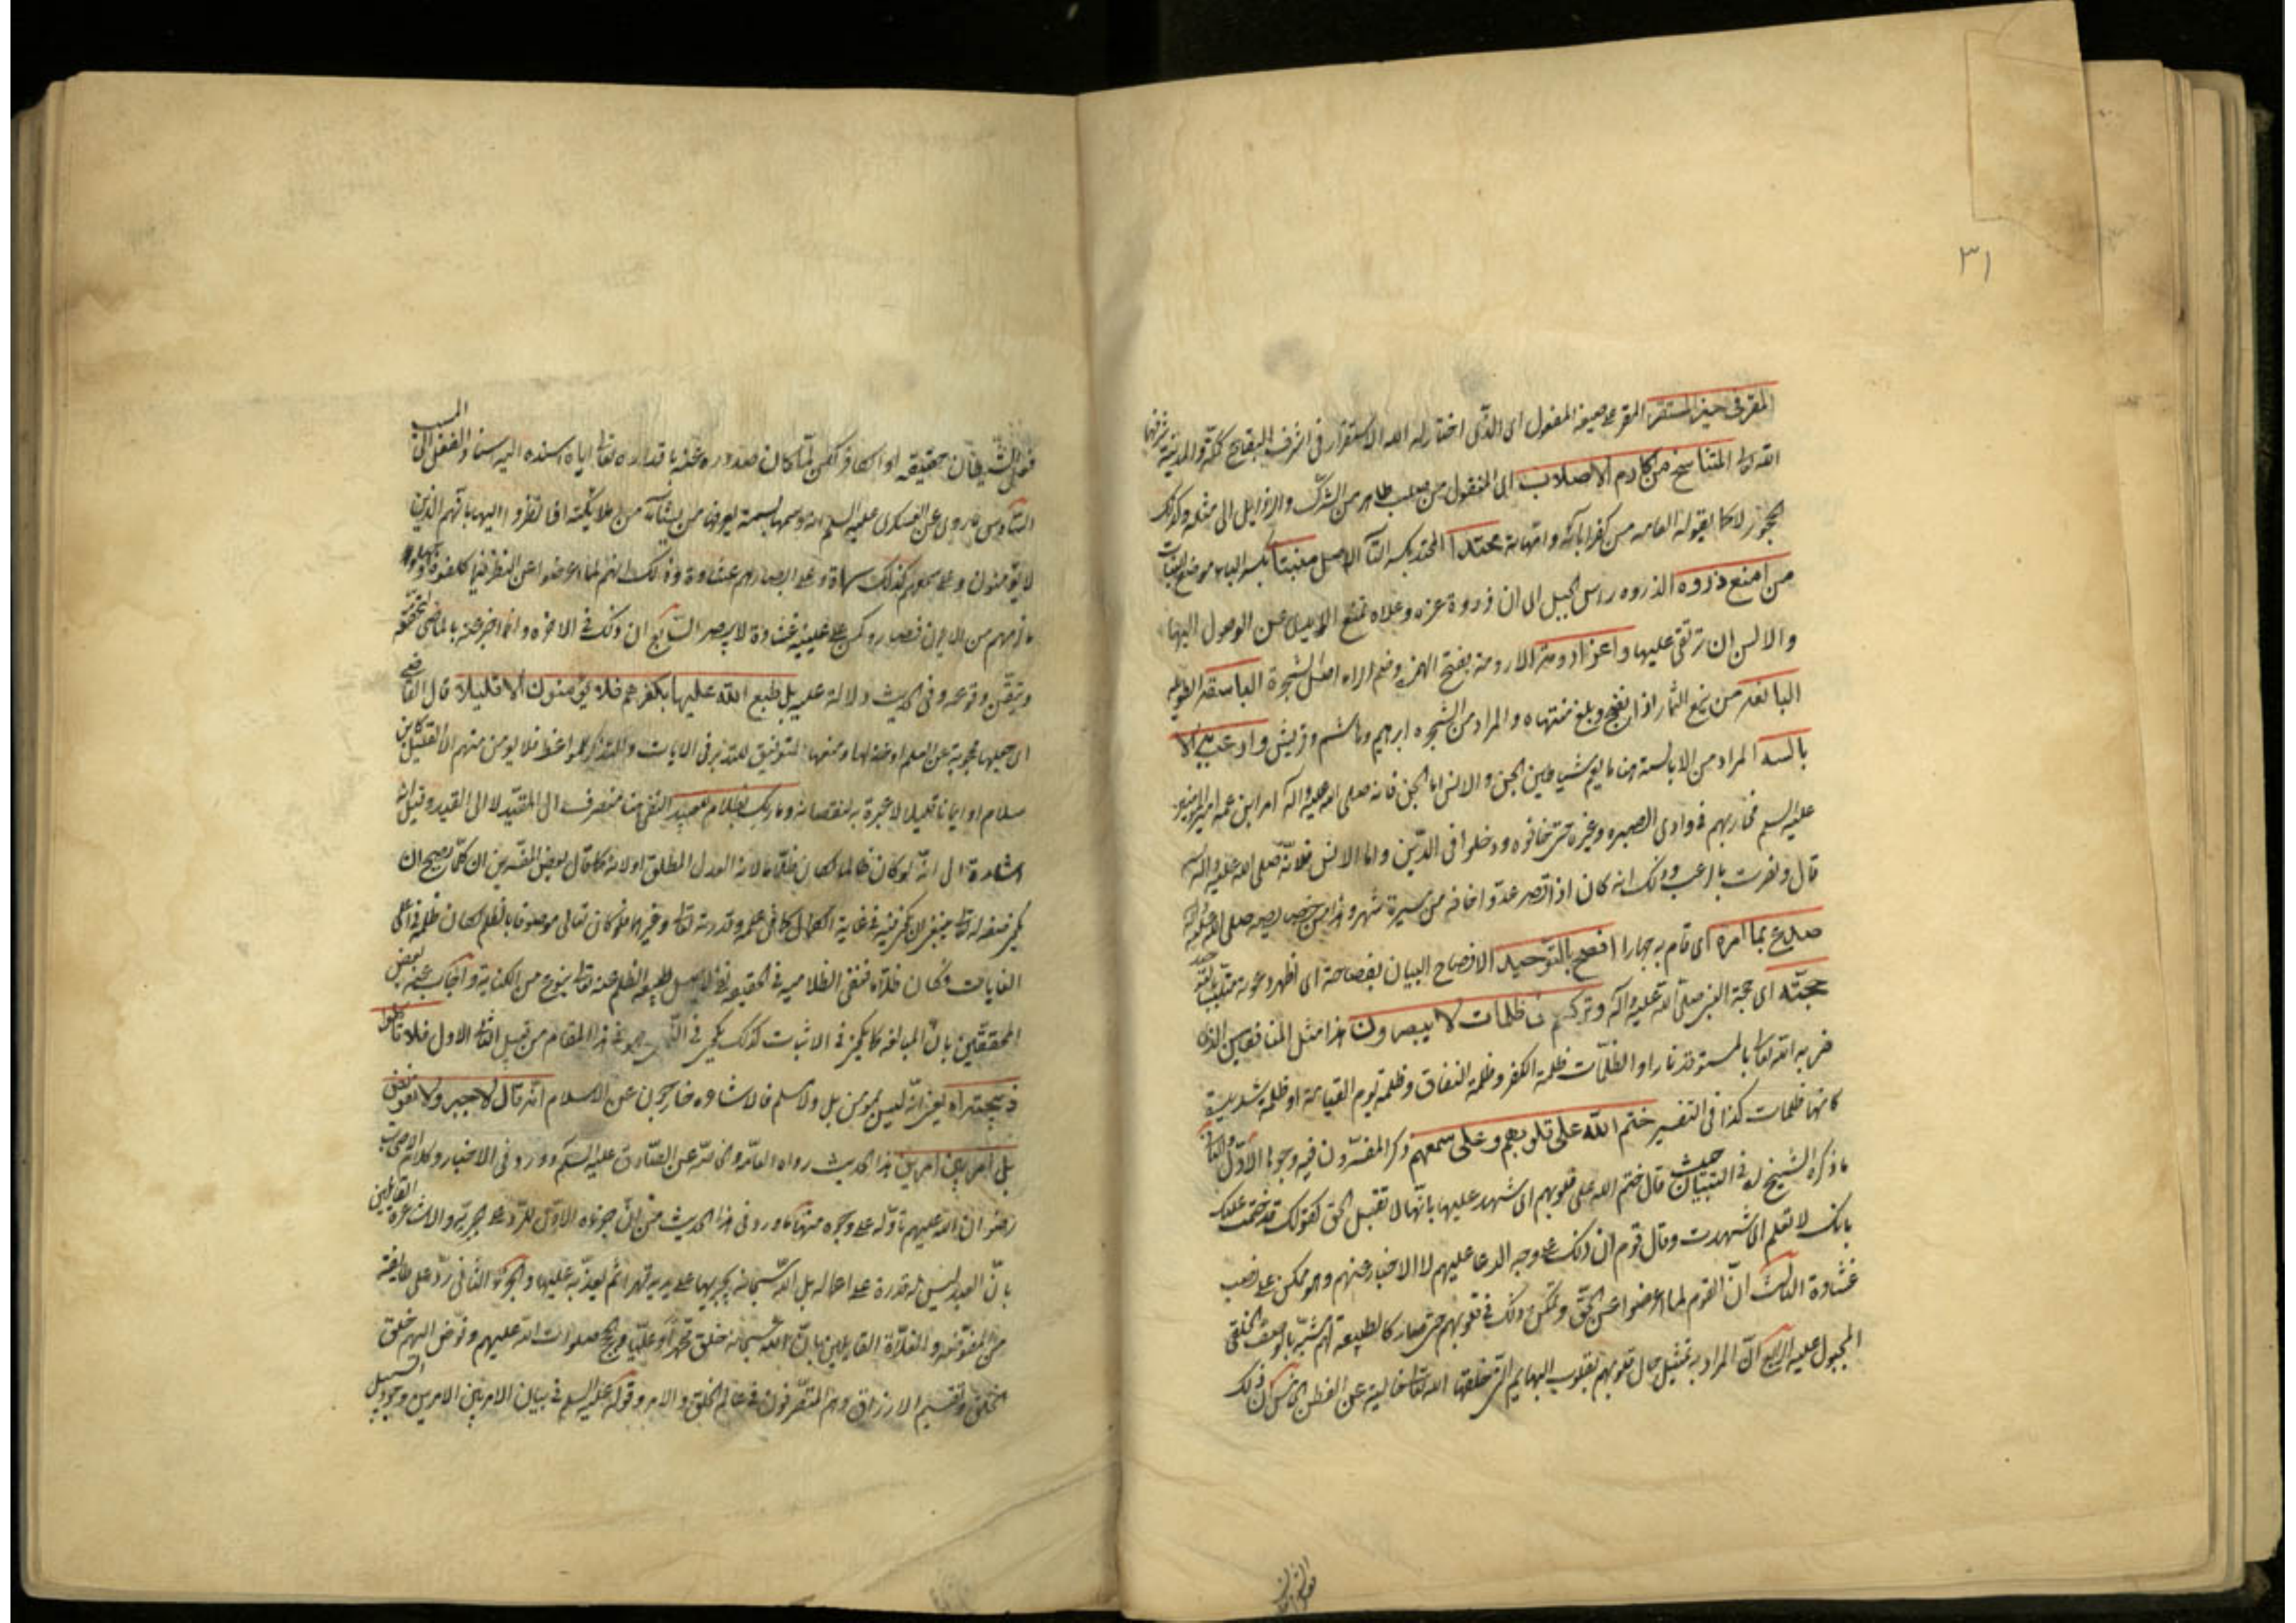 ٣١
المقر في حيز المستقر المقر على صيغة المفعول اى الذى اختار له الله الاستقرار في اشرف البقاع كمكة والمدينة شرفها
الله تعالى المتناسخ من اكارم الاصلاب اى المنقول من صلب طاهر من الشرك والرذايل الى مثله وكذلك
الحجور لا كما يقوله العامه من كفر ابائه وامهاته محتدا المحتد بكسر التآ الاصل منبتا بكسر الباء موضع النبات
من امنع ذروه الذروه راس الجبل اى ان ذروة عزه وعلاه تمنع الايدى عن الوصول اليها
والالسن ان ترتقى عليها واعز ارومة الارومة بفتح الهمزه وضم الراء اصل الشجرة الباسقة الطويله
اليانعه من ينع الثمار اذا نضج وبلغ منتهاه والمراد من الشجره ابرهيم وهاشم وقريش وارعب به الا
بالسه المراد من الابالسة هنا ما يعم شياطين الجن والانس اما الجن فانه صلى الله عليه واله امر ابن عمه امير المؤمنين
عليه السلم فحاربهم في وادى الصبره وغيره حتى خافوه ودخلوا فى الدين واما الانس فلانه صلى الله عليه واله
قال ونصرت بالرعب وذلك انه كان اذا قصر عدوا خافه من مسيرة شهر وهذا من خصايصه صلى الله عليه واله
صدع بما امره اى قام به جهارا افصح بالتوحيد الافصاح البيان بفصاحة اى اظهر دعوته
حجته اى حجة النبى صلى الله عليه وآله وتركهم فى ظلمات لا يبصرون هذا مثل المنافقين الذى
ضربه الله تعالى بالمستوقد نارا والظلمات ظلمة الكفر وظلمة النفاق وظلمة يوم القيامة او ظلمة شديدة
كانها ظلمات كذا فى التفسير ختم الله على قلوبهم وعلى سمعهم ذكر المفسرون فيه وجوها الاول
ما ذكره الشيخ ره فى التبيان حيث قال ختم الله على قلوبهم اى شهد عليها بانها لا تقبل الحق كقولك قد ختمت عليك
بانك لا تعلم اى شهدت وقال قوم ان ذلك على وجه الدعا عليهم لا الاخبار عنهم وهو ممكن على نصب
غشاوة الثالث ان القوم لما اعرضوا عن الحق وتمكن ذلك فى قلوبهم حتى صار كالطبيعة لهم شبه بالوصف الخلقى
المجبول عليه الرابع ان المراد به تمثيل حال قلوبهم بقلوب البهايم التى خلقها الله تعالى خالية عن الفطن الخامس ان ذلك
فعل الشيطان حقيقه او الكافر لكن لما كان صدوره عنه باقداره تعالى اياه اسنده اليه اسناد الفعل الى المسبب
السادس ما روى عن العسكرى عليه السلم انه وسمها بسمة يعرفها من يشآء من ملائكته اذا نظروا اليها بانهم الذين
لا يؤمنون وعلى سمعهم كذلك سماة وعلى ابصارهم غشاوة وذلك انهم لما اعرضوا عن النظر فيما كلفوه
ما ارادهم من الايمان فصاروا كمن على عينيه غشاوة لا يبصر السابع ان ذلك فى الاخره وانما اخبر عنه بالماضى لتحققه
وتيقن وقوعه وفى الحديث دلالة عليه بل طبع الله عليها بكفرهم فلا يؤمنون الا قليلا قال القاضى
اى جعلها محجوبة عن العلم او خذلها ومنعها التوفيق للتدبر فى الايات والتذكر للمواعظ فلا يؤمن منهم الا القليل كابن
سلام او ايمانا قليلا لا عبرة به لنقصانه وما ربك بظلام للعبيد النفى هنا منصرف الى المقيد لا الى القيد وقيل انه
اشارة الى انه لو كان ظالما لكان ظلاما لانه العدل المطلق او لانه كما قال بعض المفسرين ان كل ما يصح ان
الغايات وكان ظلاما فنفى الظلامية فى الحقيقه نفى لاصل طبيعه الظلم عنه تعالى بنوع من الكناية واجاب عنه بعض
المحققين بان المبالغه كما يكون فى الاثبات كذلك يكون فى النفى وهو فى هذا المقام من قبيل الثانى لا الاول
يعنى انه ليس بمومن بل ولا مسلم فالاشاعره خارجون عن الاسلام انه قال لا جبر ولا تفويض
بل امر بين امرين هذا الحديث رواه العامه والخاصه عن الصادق عليه السلم وورد فى الاخبار وكلام الاصحاب
رضوان الله عليهم تأوله على وجوه منها ما ورد فى هذا الحديث من ان جزءاه الاول للرد على الجبريه والاشاعرة القايلين
بان العبد ليس له قدرة على افعاله بل الله سبحانه يجريها على يديه قهرا ثم يعذبه عليها والجزء الثانى رد على طايفة
من المفوضه والغلاة القايلين بان الله سبحانه خلق محمدا وعليا صلوات الله عليهم وفوض اليهم خلق
الخلق وتقسيم الارزاق وهم المتصرفون فى عالم الخلق والامر وقوله عليه السلم فى بيان الامر بين الامرين وجود السبيل